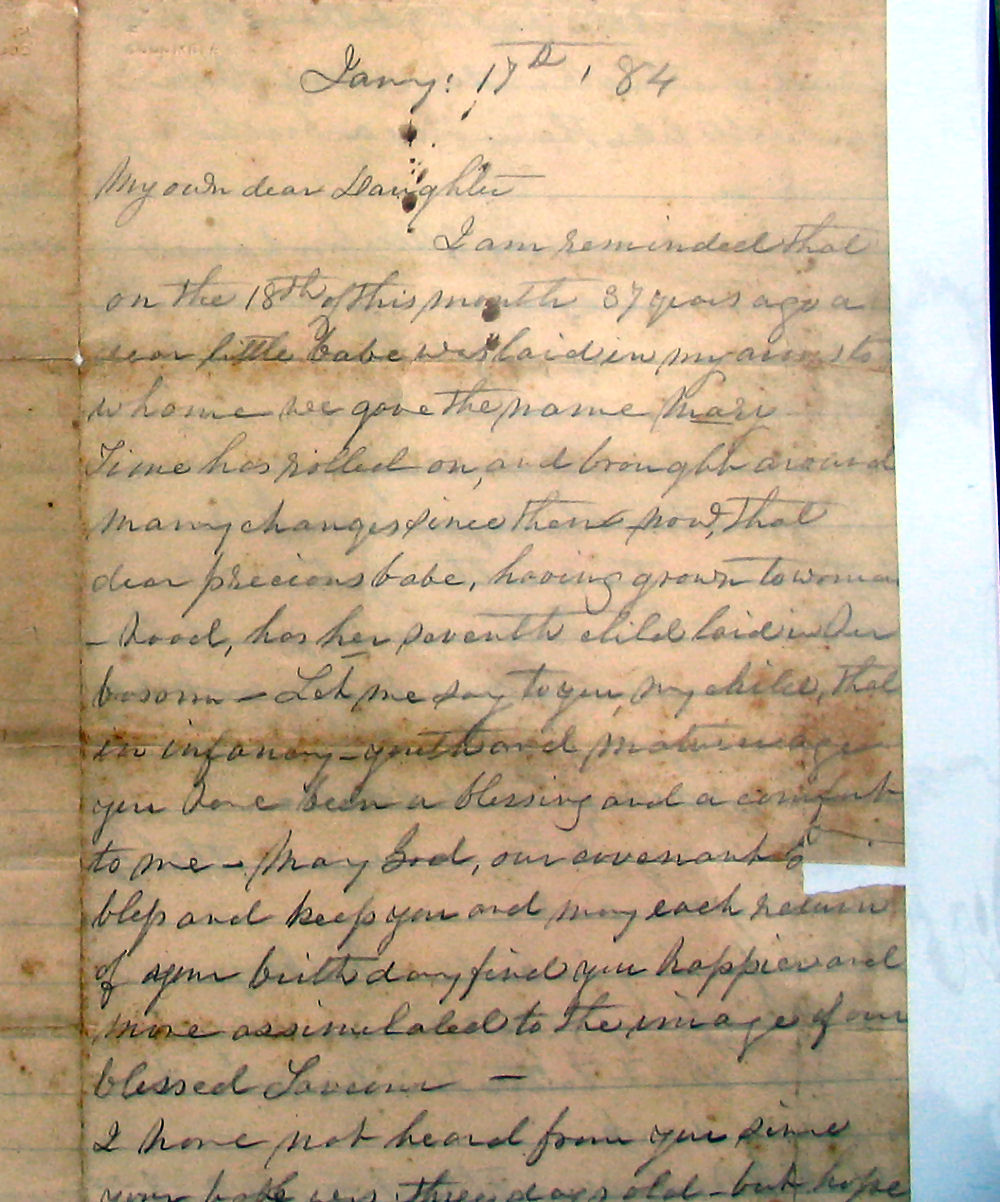 Jany: 17th, 84
My own dear Daughter
I am reminded that
on the 18th of this month 37 years ago a
dear little babe was laid in my arms to
whome we gave the name Mary
Time has rolled on, and brought around
many changes since then & now, that
dear precious babe, having grown to woman
- hood, has her seventh child laid in her
bosom - Let me say to you, my child, that
in infancy - youth and mature age
you have been a blessing and a comfort
to me - May God, our covenant
bless and keep you and may each return
of your birth day find you happier and
more assimilated to the image of our
blessed Saviour -
I have not heard from you since
your babe was three days old - but hope